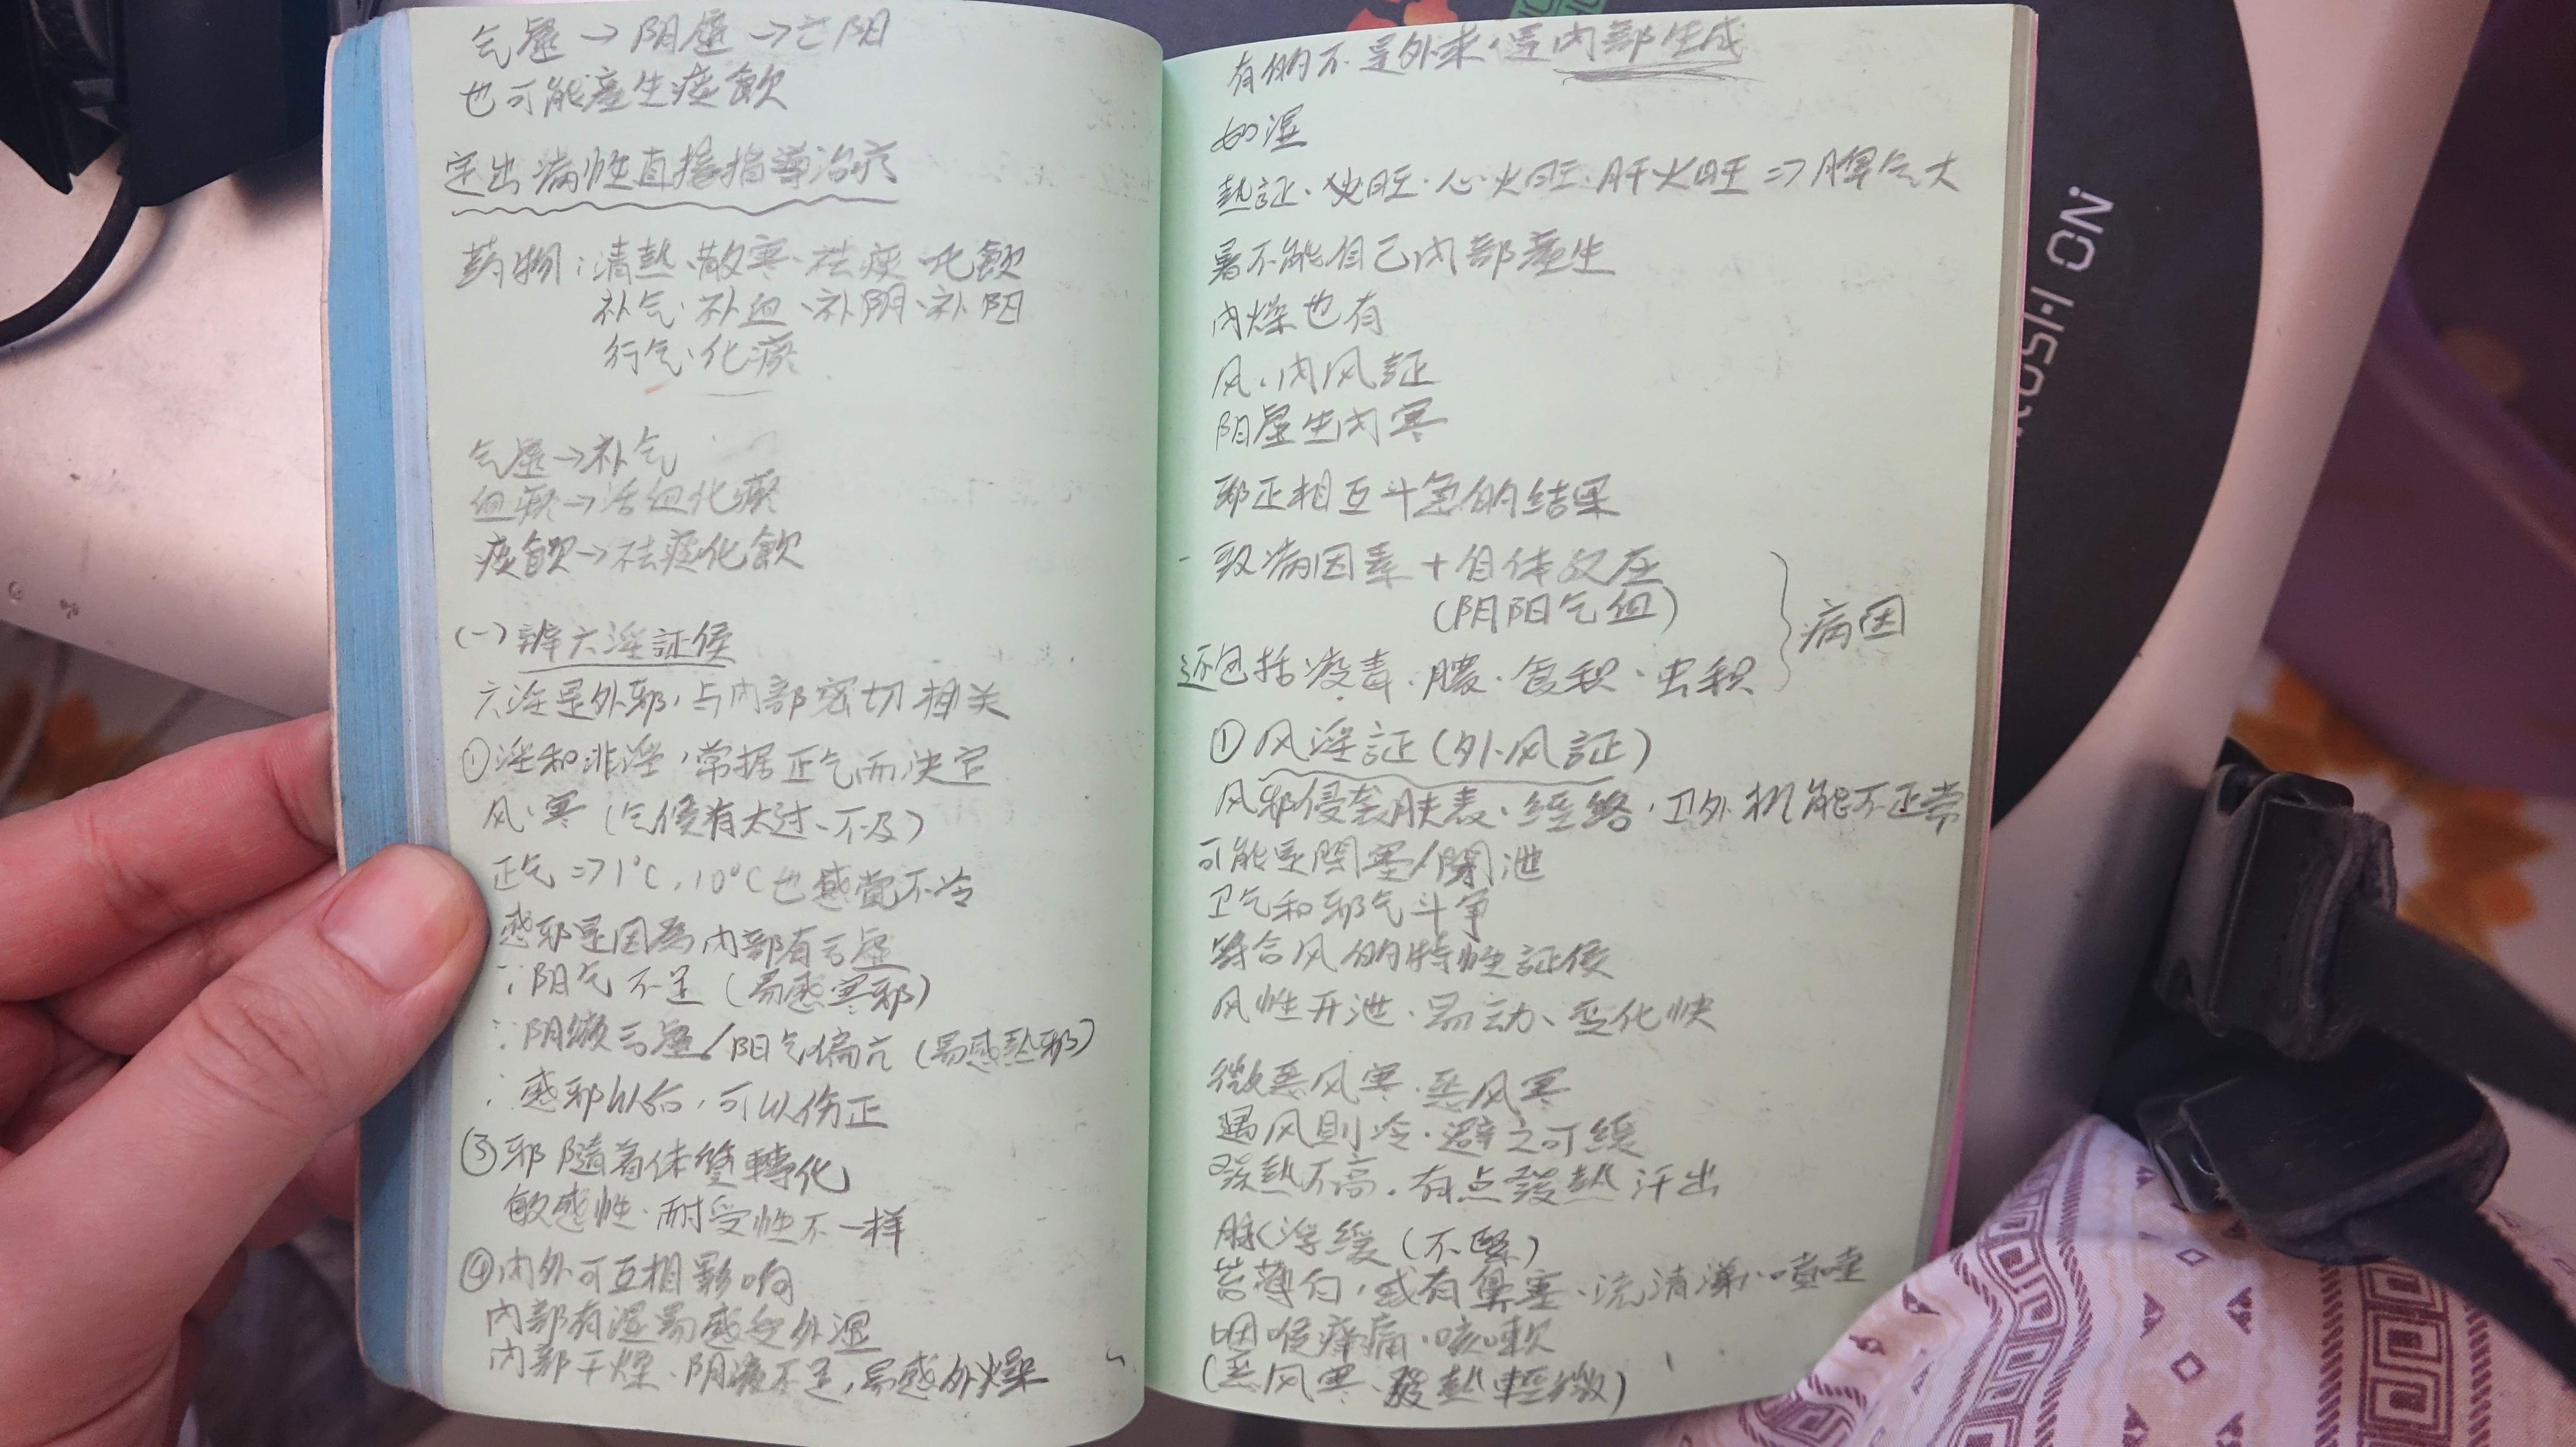 气虛→阳虛→亡阳
也可能產生痰飲
定出病性直接指導治疗
药物:清熱、散寒、祛痰、化飲
补气、补血、补阴、补阳
行气、化瘀
气虛→补气
血瘀→活血化瘀
痰飲→祛痰化飲
(一)辨六淫証候
六淫是外邪,与内部密切相关
①淫和非淫,常据正气而决定
风、寒(气候有太过、不及)
正气⇒1℃,10℃也感覺不冷
感邪是因為内部有亏虛
∵阳气不足(易感寒邪)
∵阴液亏虛/阳气偏亢(易感熱邪)
∴感邪以后,可以伤正
③邪隨着体質轉化
敏感性、耐受性不一样
④内外可互相影响
内部有湿易感受外湿
内部干燥、阴液不足,易感外燥
有的不是外来,是内部生成
如湿
熱証、火旺、心火旺、肝火旺⇒脾气大
暑不能自己内部產生
内燥也有
风、内风証
阳虛生内寒
邪正相互斗争的结果
一致病因素+自体反应
(阴阳气血)
还包括疫毒、膿、食积、虫积
病因
①风淫証(外风証)
风邪侵袭肤表、经络,卫外机能不正常
可能是閉塞/開泄
卫气和邪气斗争
符合风的特性証候
风性开泄、易动、变化快
微恶风寒、恶风寒
遇风則冷、避之可缓
發熱不高,有点發熱汗出
脉浮缓(不緊)
苔薄白,或有鼻塞、流清涕、喷嚏
咽喉痒痛、咳嗽
(恶风寒、發熱輕微)
ROSH ON